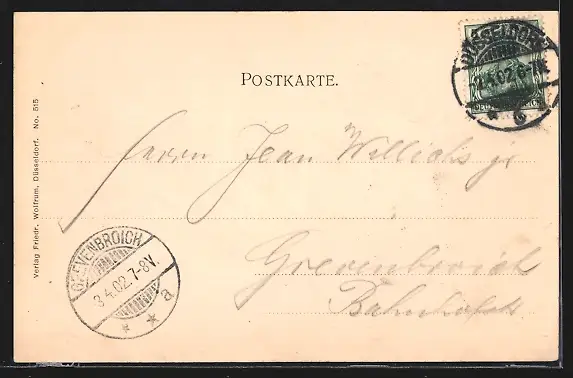 DÜSSELDORF
2.4.02. 6-7N.
POSTKARTE.
Verlag Friedr. Wolfrum, Düsseldorf. No. 515
Herrn Jean Willichs jr
GREVENBROICH
3.4.02. 7-8V.
* * a
Grevenbroich
Bahnhofstr.